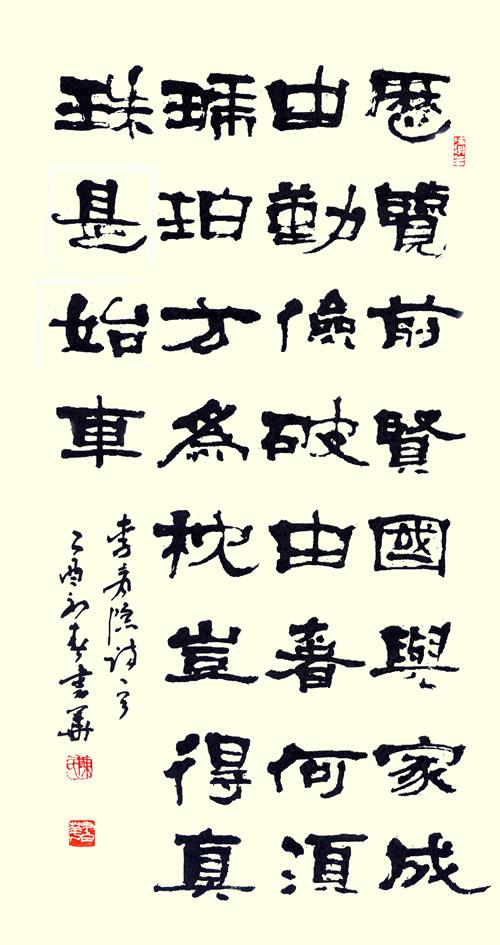 歷覽前賢國與家成
由勤儉破由奢何須
琥珀方為枕豈得真
珠是始車
李商隱詩一首
乙酉初春書華